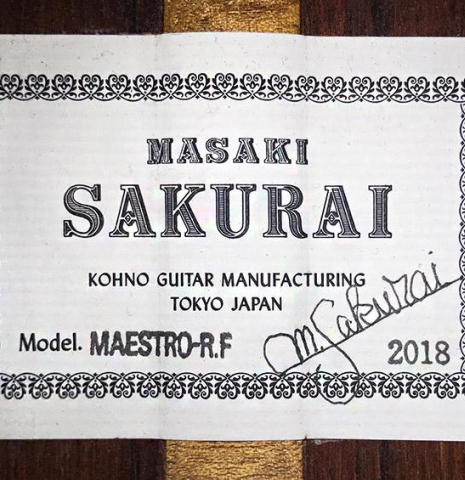 MASAKI
SAKURAI
KOHNO GUITAR MANUFACTURING
TOKYO JAPAN
Model. MAESTRO-R.F
M. Sakurai
2018